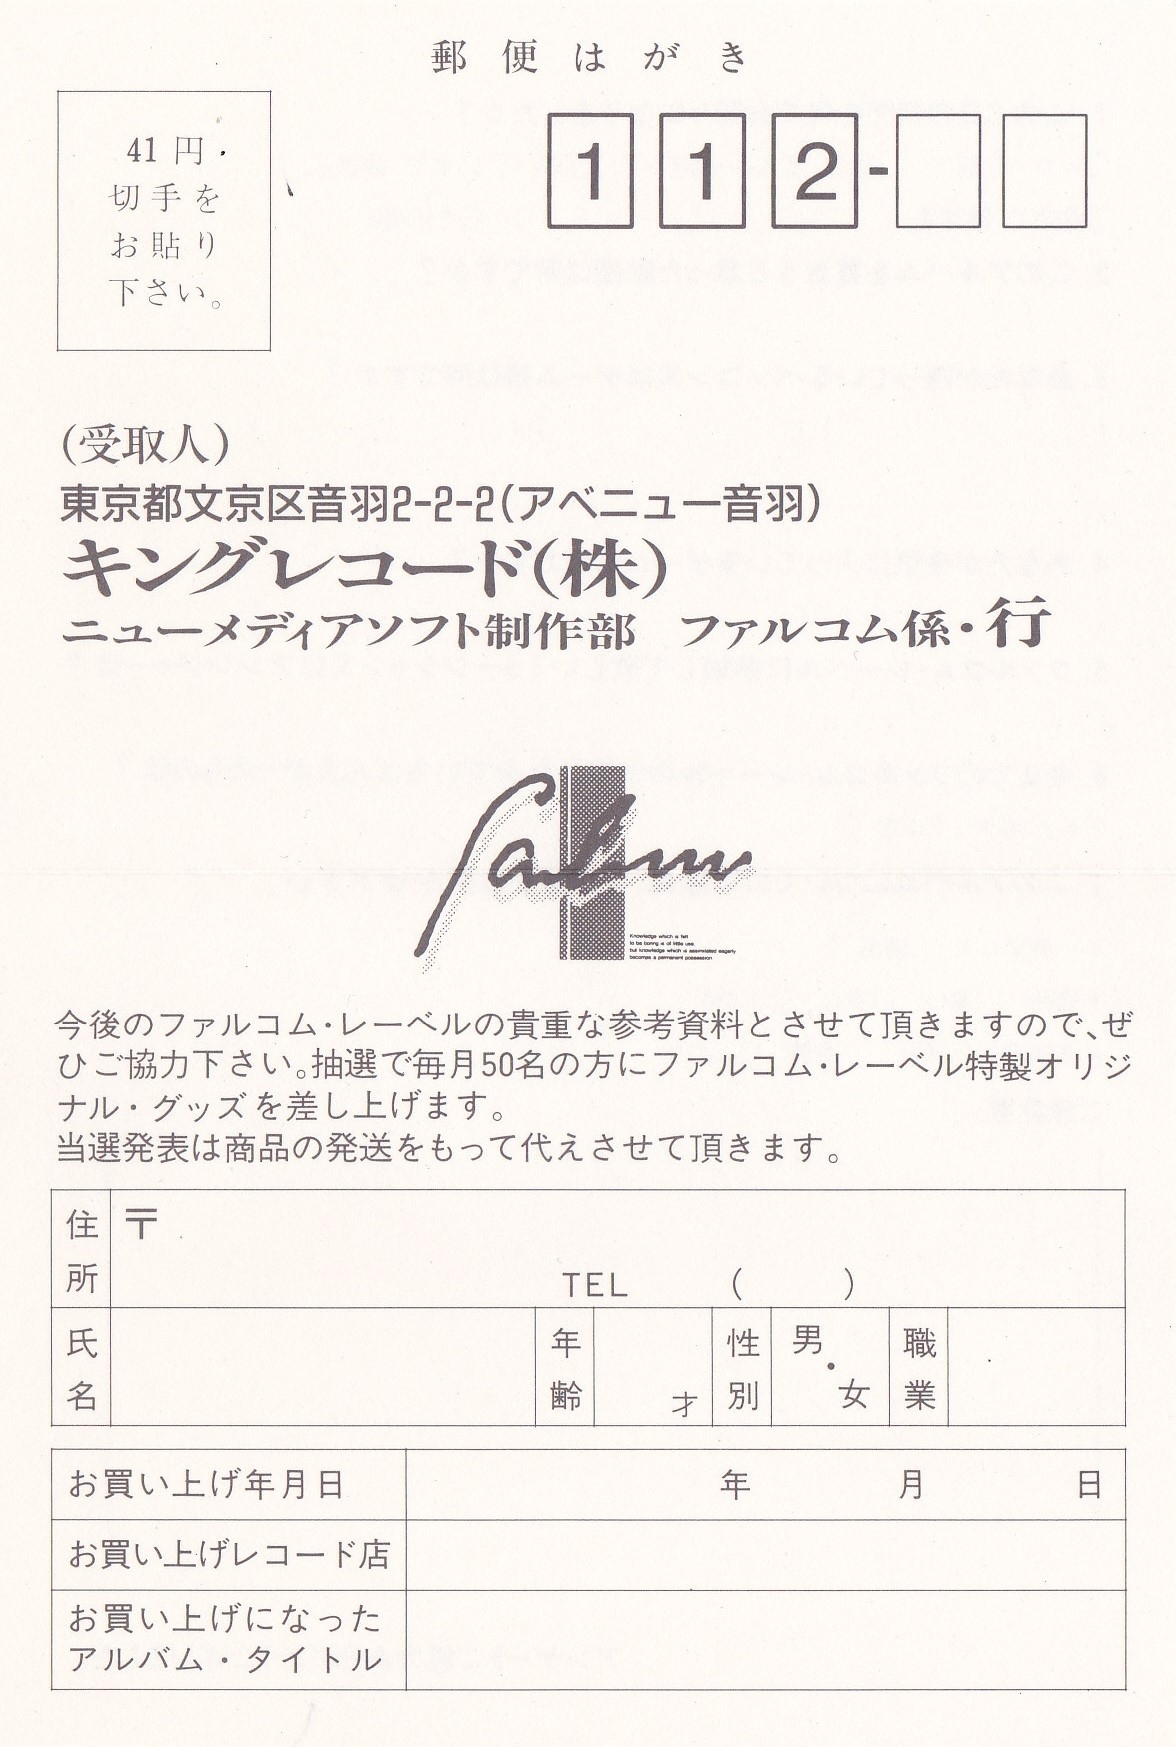 郵便はがき
41円
切手を
お貼り
下さい。
112-
(受取人)
東京都文京区音羽2-2-2(アベニュー音羽)
キングレコード(株)
ニューメディアソフト制作部 ファルコム係・行
Falcom
Knowledge which is felt
to be boring is of little use.
but knowledge which is assimilated eagerly
becomes a permanent possession
今後のファルコム・レーベルの貴重な参考資料とさせて頂きますので、ぜ
ひご協力下さい。抽選で毎月50名の方にファルコム・レーベル特製オリジ
ナル・グッズを差し上げます。
当選発表は商品の発送をもって代えさせて頂きます。
住所 〒
TEL ( )
氏名 年齢 才 性別 男・女 職業
お買い上げ年月日 年 月 日
お買い上げレコード店
お買い上げになった
アルバム・タイトル